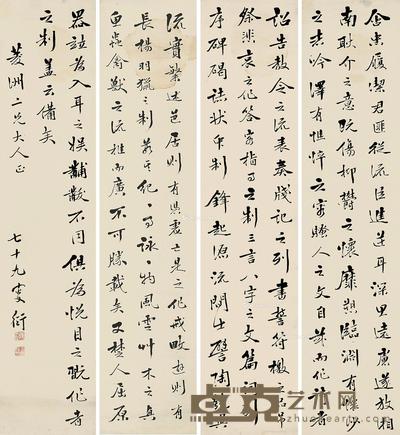 含忠履潔君匪從流臣進逆耳深思遠慮遂放湘
南耿介之意既傷抑鬱之懷靡愬臨淵有懷沙
之志吟澤有憔悴之容騷人之文自茲而作詩者
詔告教令之流表奏牋記之列書誓符檄之品弔
祭悲哀之作答客指事之制三言八字之文篇詞引
序碑碣誌狀眾制鋒起源流間出譬陶匏異
流實繁述邑居則有憑虛亡是之作戒畋遊則有
長楊羽獵之制若其紀一事詠一物風雲艸木之興
魚蟲禽獸之流推而廣不可勝載矣又楚人屈原
器並為入耳之娛黼黻不同俱為悅目之玩作者
之制蓋云備矣
菱洲二兄大人正
七十九叟衍